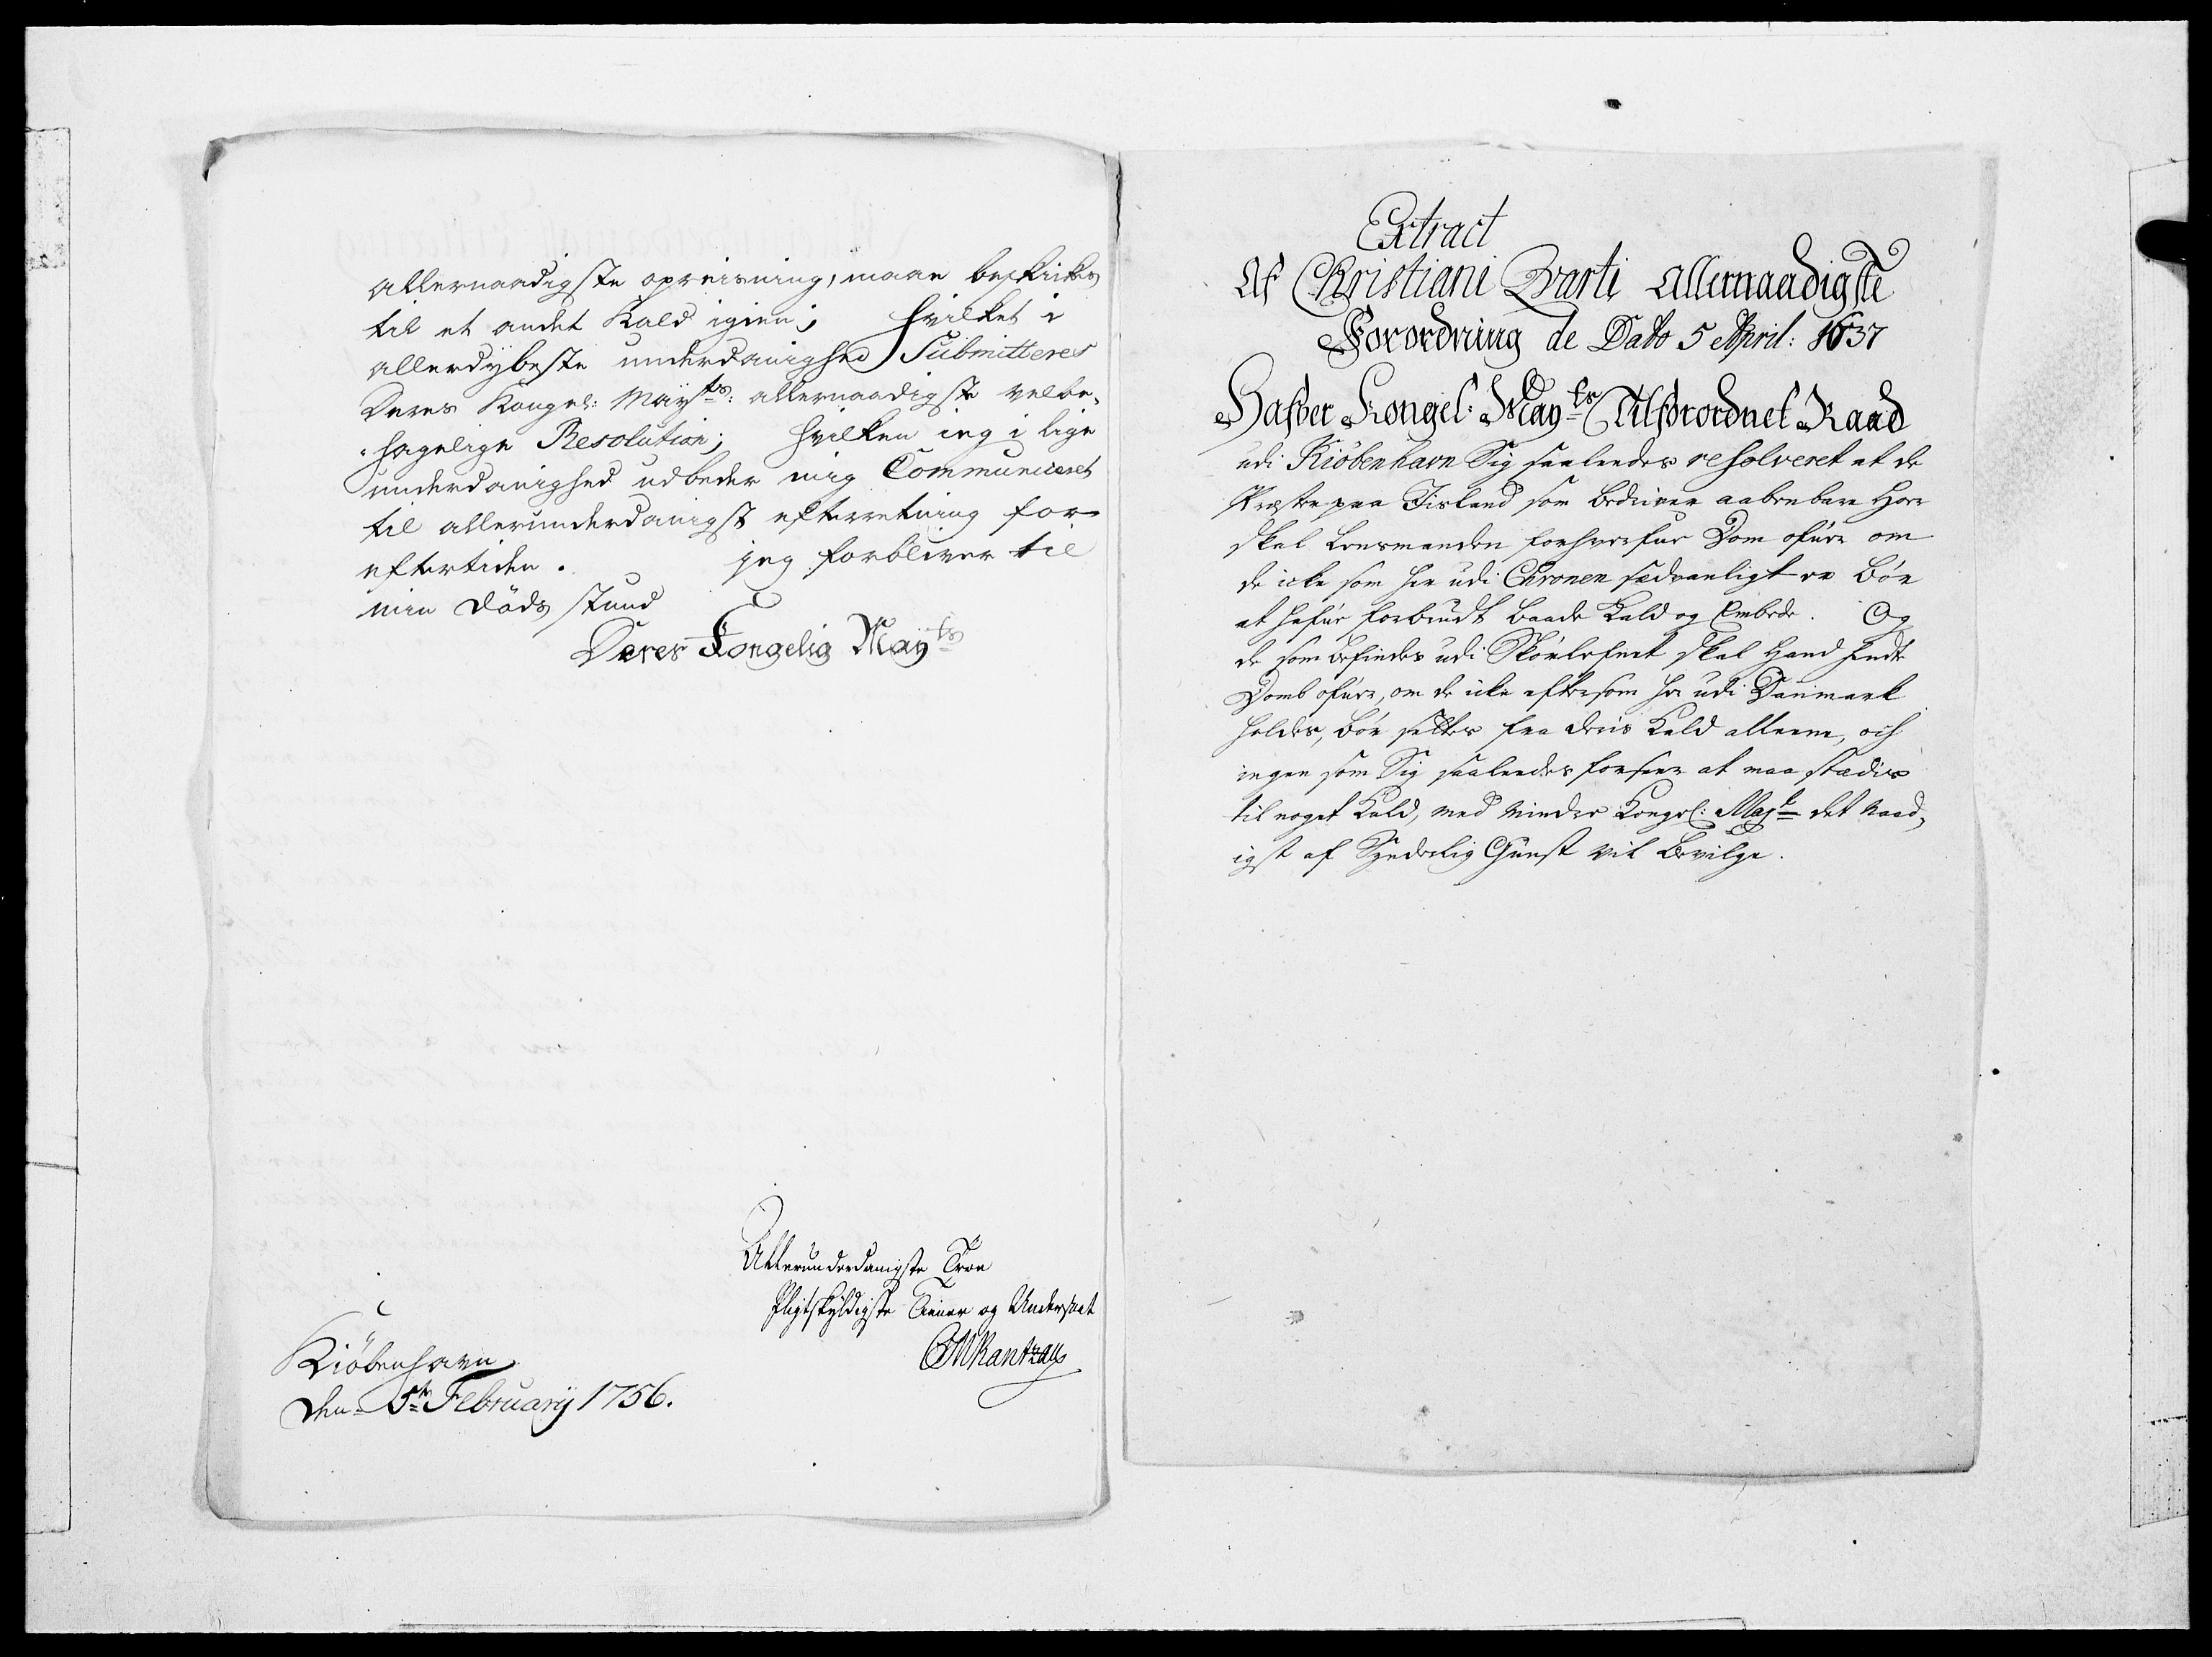 allernaadigste opreisning, maae beskickes
til et andet Kald igien; hvilket i
allerdybeste underdanighed Submitteres
Deres Kongel: Mayts: allernaadigste velbe-
hagelige Resolution; hvilken ieg i lige
underdanighed udbeder mig Communiceret
til allerunderdanigst efterretning for
eftertiden. jeg forbliver til
min Döds stund
Deres Kongelig Mayts
Allerunderdanigste Troe
Pligtskyldigste Tiener og Undersaat
CMRantzau
Kiöbenhavn
den 5te February 1756.
Extract
Af Christiani Qvarti Allernaadigste
Forordning de Dato 5 April: 1637
Hafver Kongel: Mayts Tilforordnet Raad
udi Kiöbenhavn Sig saaledes resolveret at de
Præster paa Iisland som bedriver aabenbare Hoer
skal Lensmanden forhverfue Dom ofuer om
de icke som her udi Chronen sædvanligt er bör
at hafue forbrudt baade Kald og Embede. Og
de som befindes udi Skörlefnet skal Hand hende
Domb ofuer, om de icke eftersom her udi Danmark
holdes, bör settes fra deris Kald alleene, och
ingen som Sig saaledes forseer at maa stædis
til noget Kald, med minder Kongel: Mayt det naad-
igst af Synderlig Gunst vil bevilge.